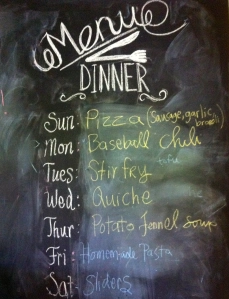 Menu
DINNER
Sun: Pizza (Sausage, garlic,
broccoli)
Mon: Baseball Chili
tofu
Tues: Stirfry
Wed: Quiche
Thur: Potato Fennel Soup
Fri: Homemade Pasta
Sat: Sliders